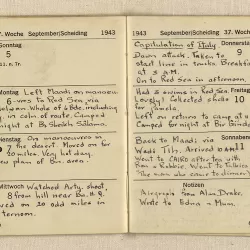 37. Woche September/Scheiding 1943
Sonntag
5
Montag Left Maadi on manoeu-
6 vres to Red Sea via
Whole of 6 Bde. including
in colm. of route. Camped
night at Bir
Dienstag On manoeuvres in
7 the desert. Moved on for
20 miles. Very hot day.
plan of Bn. area.
Mittwoch Watched Arty. shoot,
8 from hill near Bn. H.Q.
Moved on 20 odd miles in
afternoon.
1943 September/Scheiding 37. Woche
Capitulation of Italy Donnerstag
Dawn attack. Taken to 9
start line in trucks. Breakfast
at 8 A.M.
On to Red Sea in afternoon.
Had 2 swims in Red Sea. Freitag
Lovely. Collected shells 10
for
Left on return to camp at
Camped for night at Bir Gindali
Back to Maadi via Sonnabend
Wadi Tih. Arrived 10 AM 11
Went to CAIRO after tea with
Ran & Robbie. Went to Talkies
"The man who came to dinner"
Notizen
Airgraph from Alan Drake.
Wrote to Edna & Mum.